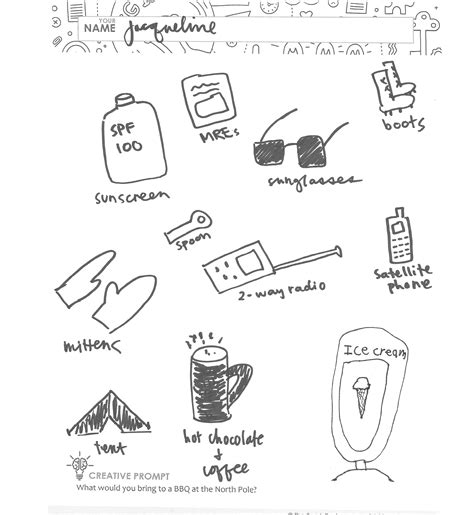 YOUR
NAME Jacqueline
SPF
100
sunscreen
MREs
sunglasses
boots
spoon
mittens
2-way radio
satellite
phone
tent
hot chocolate
+
coffee
Ice cream
CREATIVE PROMPT
What would you bring to a BBQ at the North Pole?